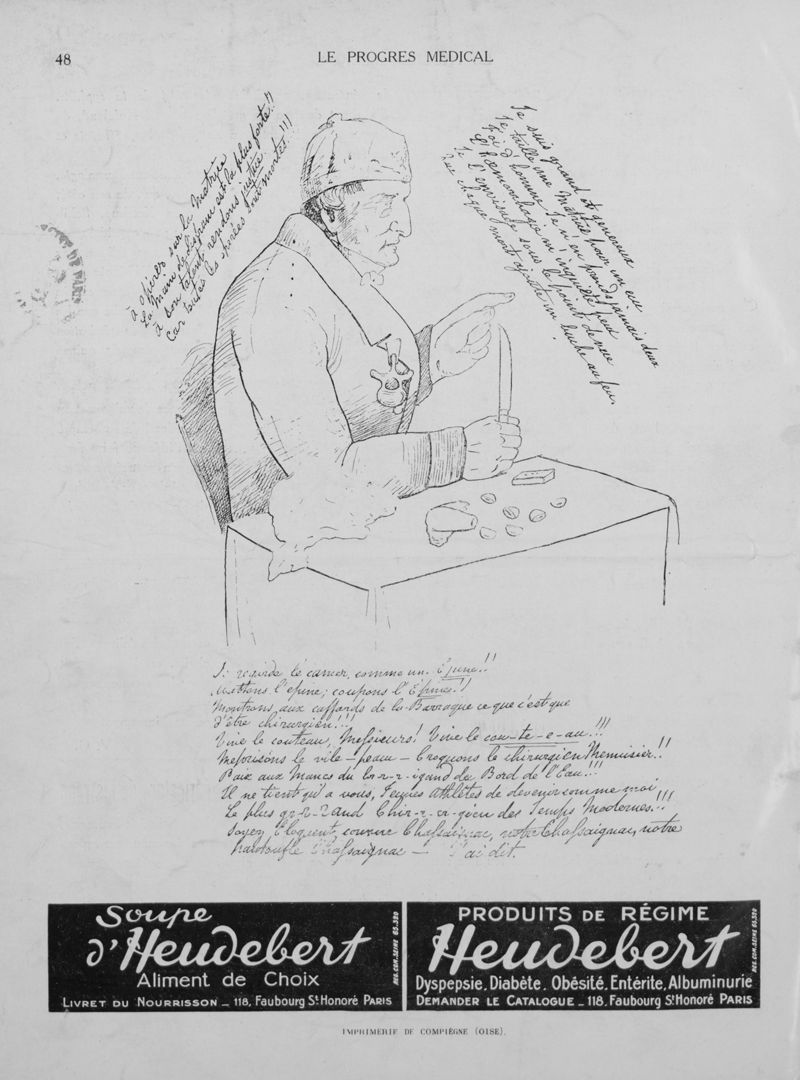 48
LE PROGRES MEDICAL
à opérer sur la Matrice
La main de Lisfranc est la plus forte!!
à son talent rendons justice
Car toutes les opérées sont mortes!!!
Je suis grand et genereux
Je taille une Matrice pour un ecu
Foi d'honneur Je n'en prends jamais deux
L'hœmorrhagie m'inquiète peu
Je l'eparpille sous le point de
Que chaque mort ajoute un buche au feu.
Je regarde le cancer, comme un Épine!!
Mettons l'epine; coupons l'Épine!!
Montrons aux caffards de la Barraque ce que c'est que
d'être chirurgien!!!
Vive le couteau, Messieurs! Vive le cou-te-e-au!!!
Meprisons le vile-peau- Croquons le chirurgien Menuisier!!
Paix aux Manes du br-r-r-igand du Bord de l'Eau!!!
Il ne tient qu'a vous, Jeunes Athlètes de devenir comme moi
Le plus gr-r-rand Chir-r-r-gien des Temps Modernes!!!
Soyez Eloquent, comme Chassaignac, notre Chassaignac, notre
Chassaignac — J'ai dit.
Soupe
d'Heudebert
Aliment de Choix
LIVRET DU NOURRISSON _ 118, Faubourg St Honoré PARIS
REG. COM. SEINE 65.320
PRODUITS DE RÉGIME
Heudebert
Dyspepsie. Diabète. Obésité. Entérite. Albuminurie
DEMANDER LE CATALOGUE _ 118. Faubourg St Honoré PARIS
REG. COM. SEINE 65.320
IMPRIMERIE DE COMPIÈGNE (OISE).